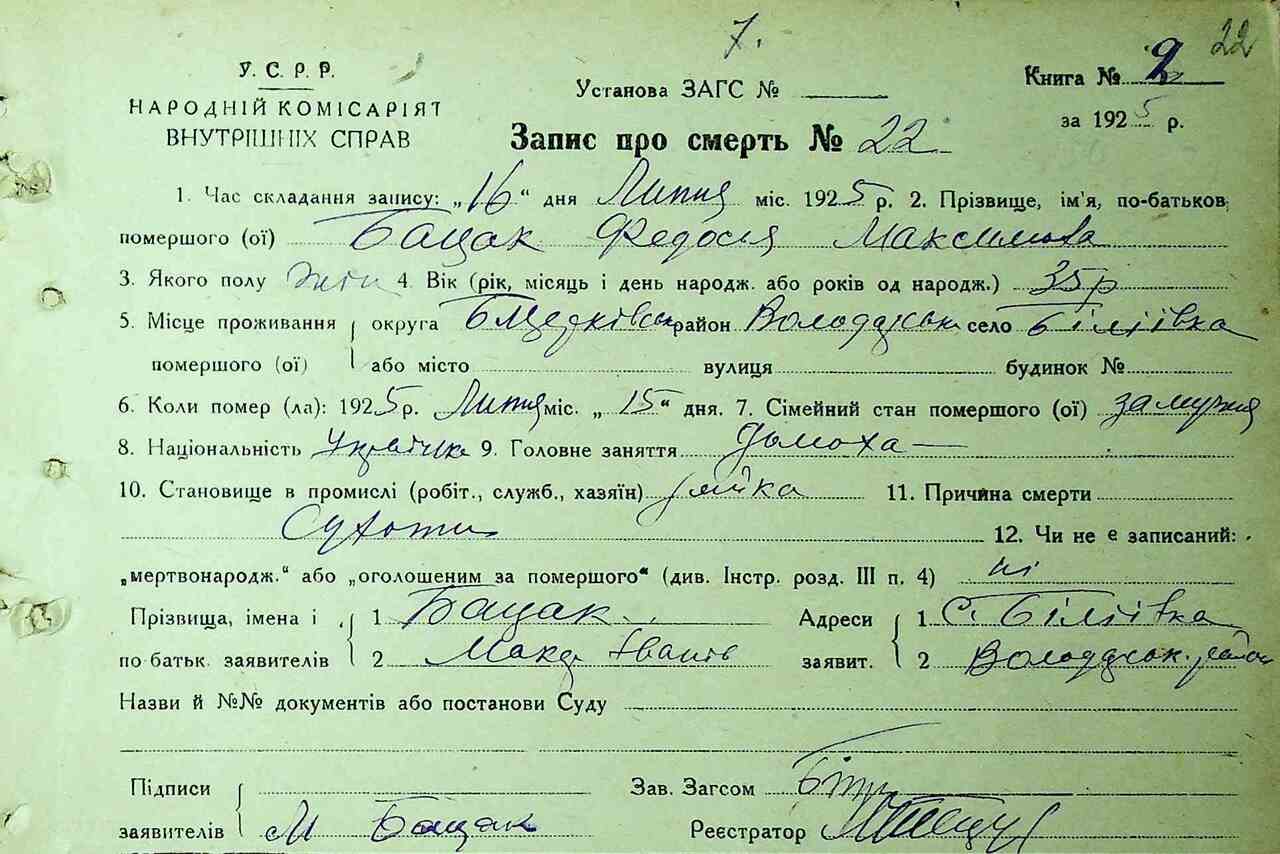 7.
22
У. С. Р. Р.
НАРОДНІЙ КОМІСАРІЯТ
ВНУТРІШНІХ СПРАВ
Установа ЗАГС №
Книга № 2
за 1925 р.
Запис про смерть № 22
1. Час складання запису: „16“ дня Липня міс. 1925 р. 2. Прізвище, ім'я, по-батьков.
помершого (ої) Бацак Федосія Максимова
3. Якого полу жін 4. Вік (рік, місяць і день народж. або років од народж.) 35 р
5. Місце проживання округа Б Церківськ район Володарськ село Біліївка
помершого (ої) або місто вулиця будинок №
6. Коли помер (ла): 1925 р. Липня міс. „15“ дня. 7. Сімейний стан помершого (ої) замужня
8. Національність Українка 9. Головне заняття домоха
10. Становище в промислі (робіт., служб., хазяїн) 11. Причина смерти
Сухоти 12. Чи не є записаний:
„мертвонародж.“ або „оголошеним за помершого“ (див. Інстр. розд. III п. 4) ні
Прізвища, імена і 1 Бацак Адреси 1 С. Біліївка
по батьк. заявителів 2 Іванів заявит. 2 Володарськ. район
Назви й №№ документів або постанови Суду
Підписи Зав. Загсом
заявителів М Бацак Реєстратор